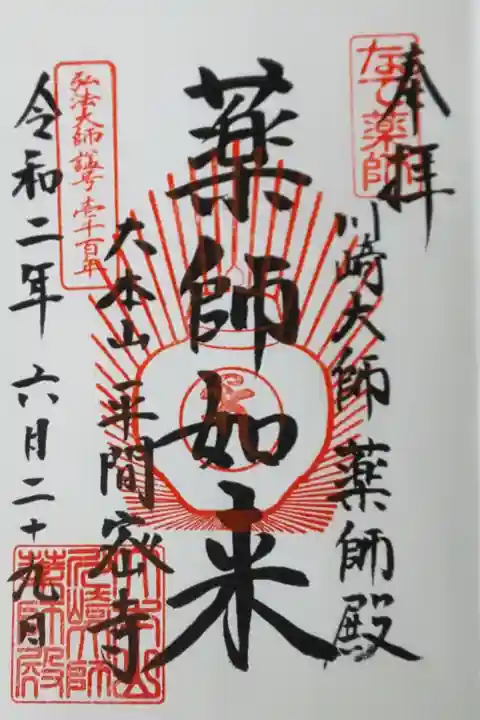 奉拝
なで薬師
川崎大師 薬師殿
薬師如来
大本山 平間寺
弘法大師 諡号 壱千百年
令和二年 六月二十九日
大本山
川崎大師
薬師殿